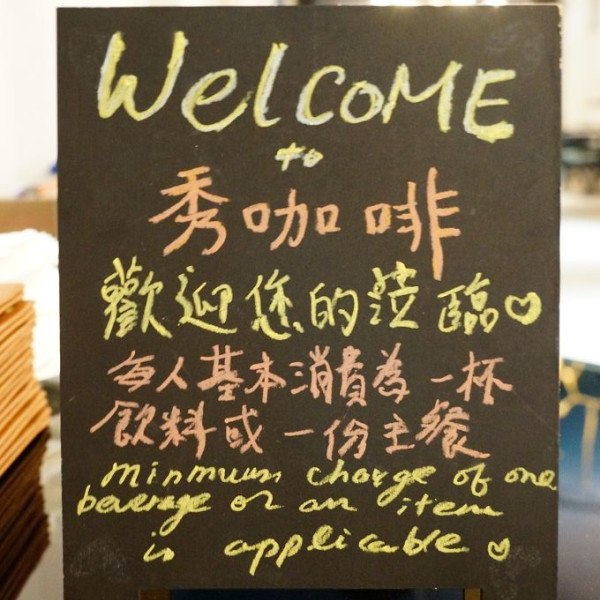 WelCOME
to
秀咖啡
歡迎您的蒞臨♡
每人基本消費為一杯
飲料或一份主餐
Minmuum charge of one
beverage or an item
is applicable ♡